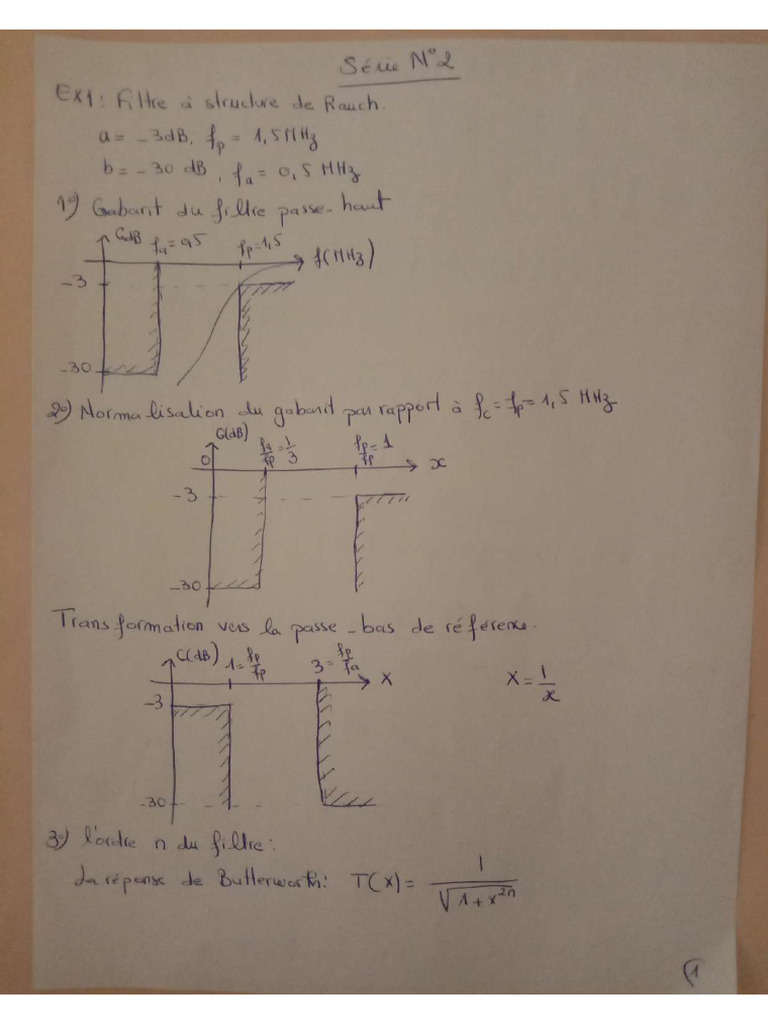 Série N°2
EX1: Filtre à structure de Rauch.
a = -3dB, fp = 1,5 MHz
b = -30 dB, fa = 0,5 MHz
1°) Gabarit du filtre passe-haut
GdB fa = 0,5 fp = 1,5 f(MHz)
-3
-30
2°) Normalisation du gabarit par rapport à fc = fp = 1,5 MHz
G(dB) fa/fp = 1/3 fp/fp = 1
0 x
-3
-30
Transformation vers la passe-bas de référence.
G(dB) 1 = fp/fp 3 = fp/fa X X = 1/x
-3
-30
3°) l'ordre n du filtre:
La réponse de Butterworth: T(X) = 1/√(1+x^2n)
1